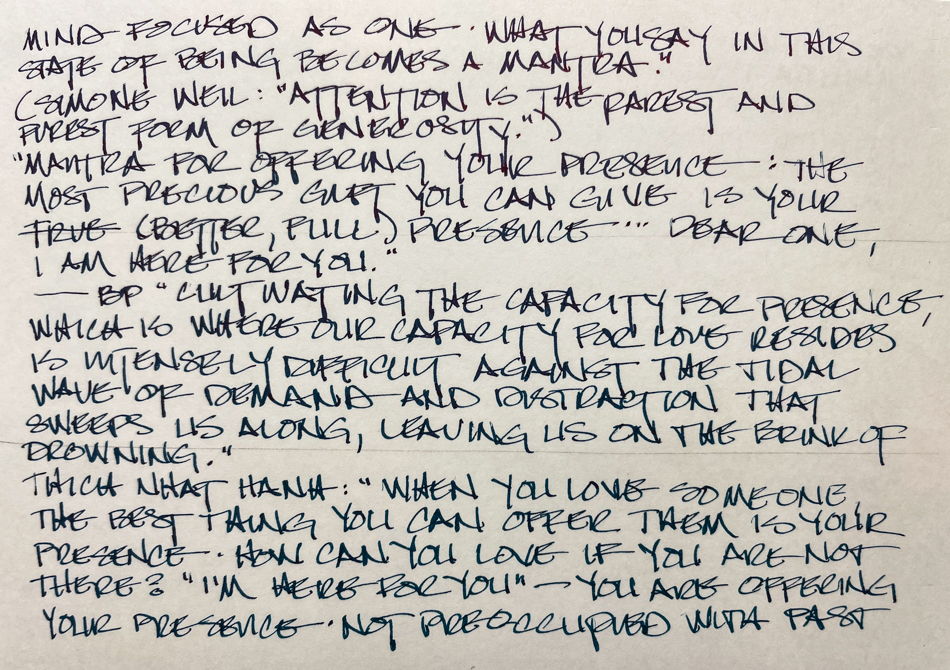 MIND FOCUSED AS ONE. WHAT YOU SAY IN THIS
STATE OF BEING BECOMES A MANTRA."
(SIMONE WEIL: "ATTENTION IS THE RAREST AND
PUREST FORM OF GENEROSITY.")
"MANTRA FOR OFFERING YOUR PRESENCE: THE
MOST PRECIOUS GIFT YOU CAN GIVE IS YOUR
TRUE (BETTER, FULL) PRESENCE ... DEAR ONE,
I AM HERE FOR YOU."
— BP "CULTIVATING THE CAPACITY FOR PRESENCE,
WHICH IS WHERE OUR CAPACITY FOR LOVE RESIDES
IS INTENSELY DIFFICULT AGAINST THE TIDAL
WAVE OF DEMAND AND DISTRACTION THAT
SWEEPS US ALONG, LEAVING US ON THE BRINK OF
DROWNING."
THICH NHAT HANH: "WHEN YOU LOVE SOMEONE,
THE BEST THING YOU CAN OFFER THEM IS YOUR
PRESENCE. HOW CAN YOU LOVE IF YOU ARE NOT
THERE? "I'M HERE FOR YOU" — YOU ARE OFFERING
YOUR PRESENCE. NOT PREOCCUPIED WITH PAST